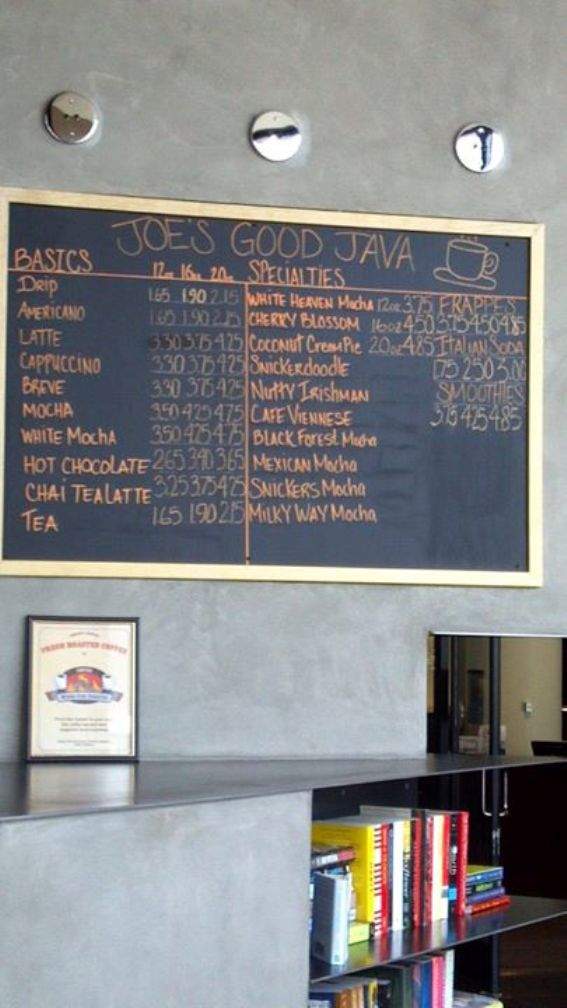 JOE'S GOOD JAVA
BASICS 12oz 16oz 20oz
Drip 1.65 1.90 2.15
AMERICANO 1.65 1.90 2.15
LATTE 3.30 3.75 4.25
CAPPUCCINO 3.30 3.75 4.25
BREVE 3.30 3.75 4.25
MOCHA 3.50 4.25 4.75
WHITE MocHA 3.50 4.25 4.75
HOT CHOCOLATE 2.65 3.65
CHAi TEA LATTE 3.25 3.75 4.25
TEA 1.65 1.90 2.15
SPECIALTIES
WHITE HEAVEN Mocha 12oz 3.75
CHERRY BLOSSOM 16oz 4.50
Coconut Cream Pie 20oz 4.85
Snickerdoodle
NuTTY IRISHMAN
CAFE VIENNESE
BLACK FOREST Mocha
MEXICAN Mocha
SNICKERS Mocha
MILKY WAY Mocha
FRAPPES
3.75 4.50 4.85
ITALIAN SODA
1.75 2.50 3.00
SMOOTHIES
3.75 4.25 4.85
FRESH ROASTED COFFEE